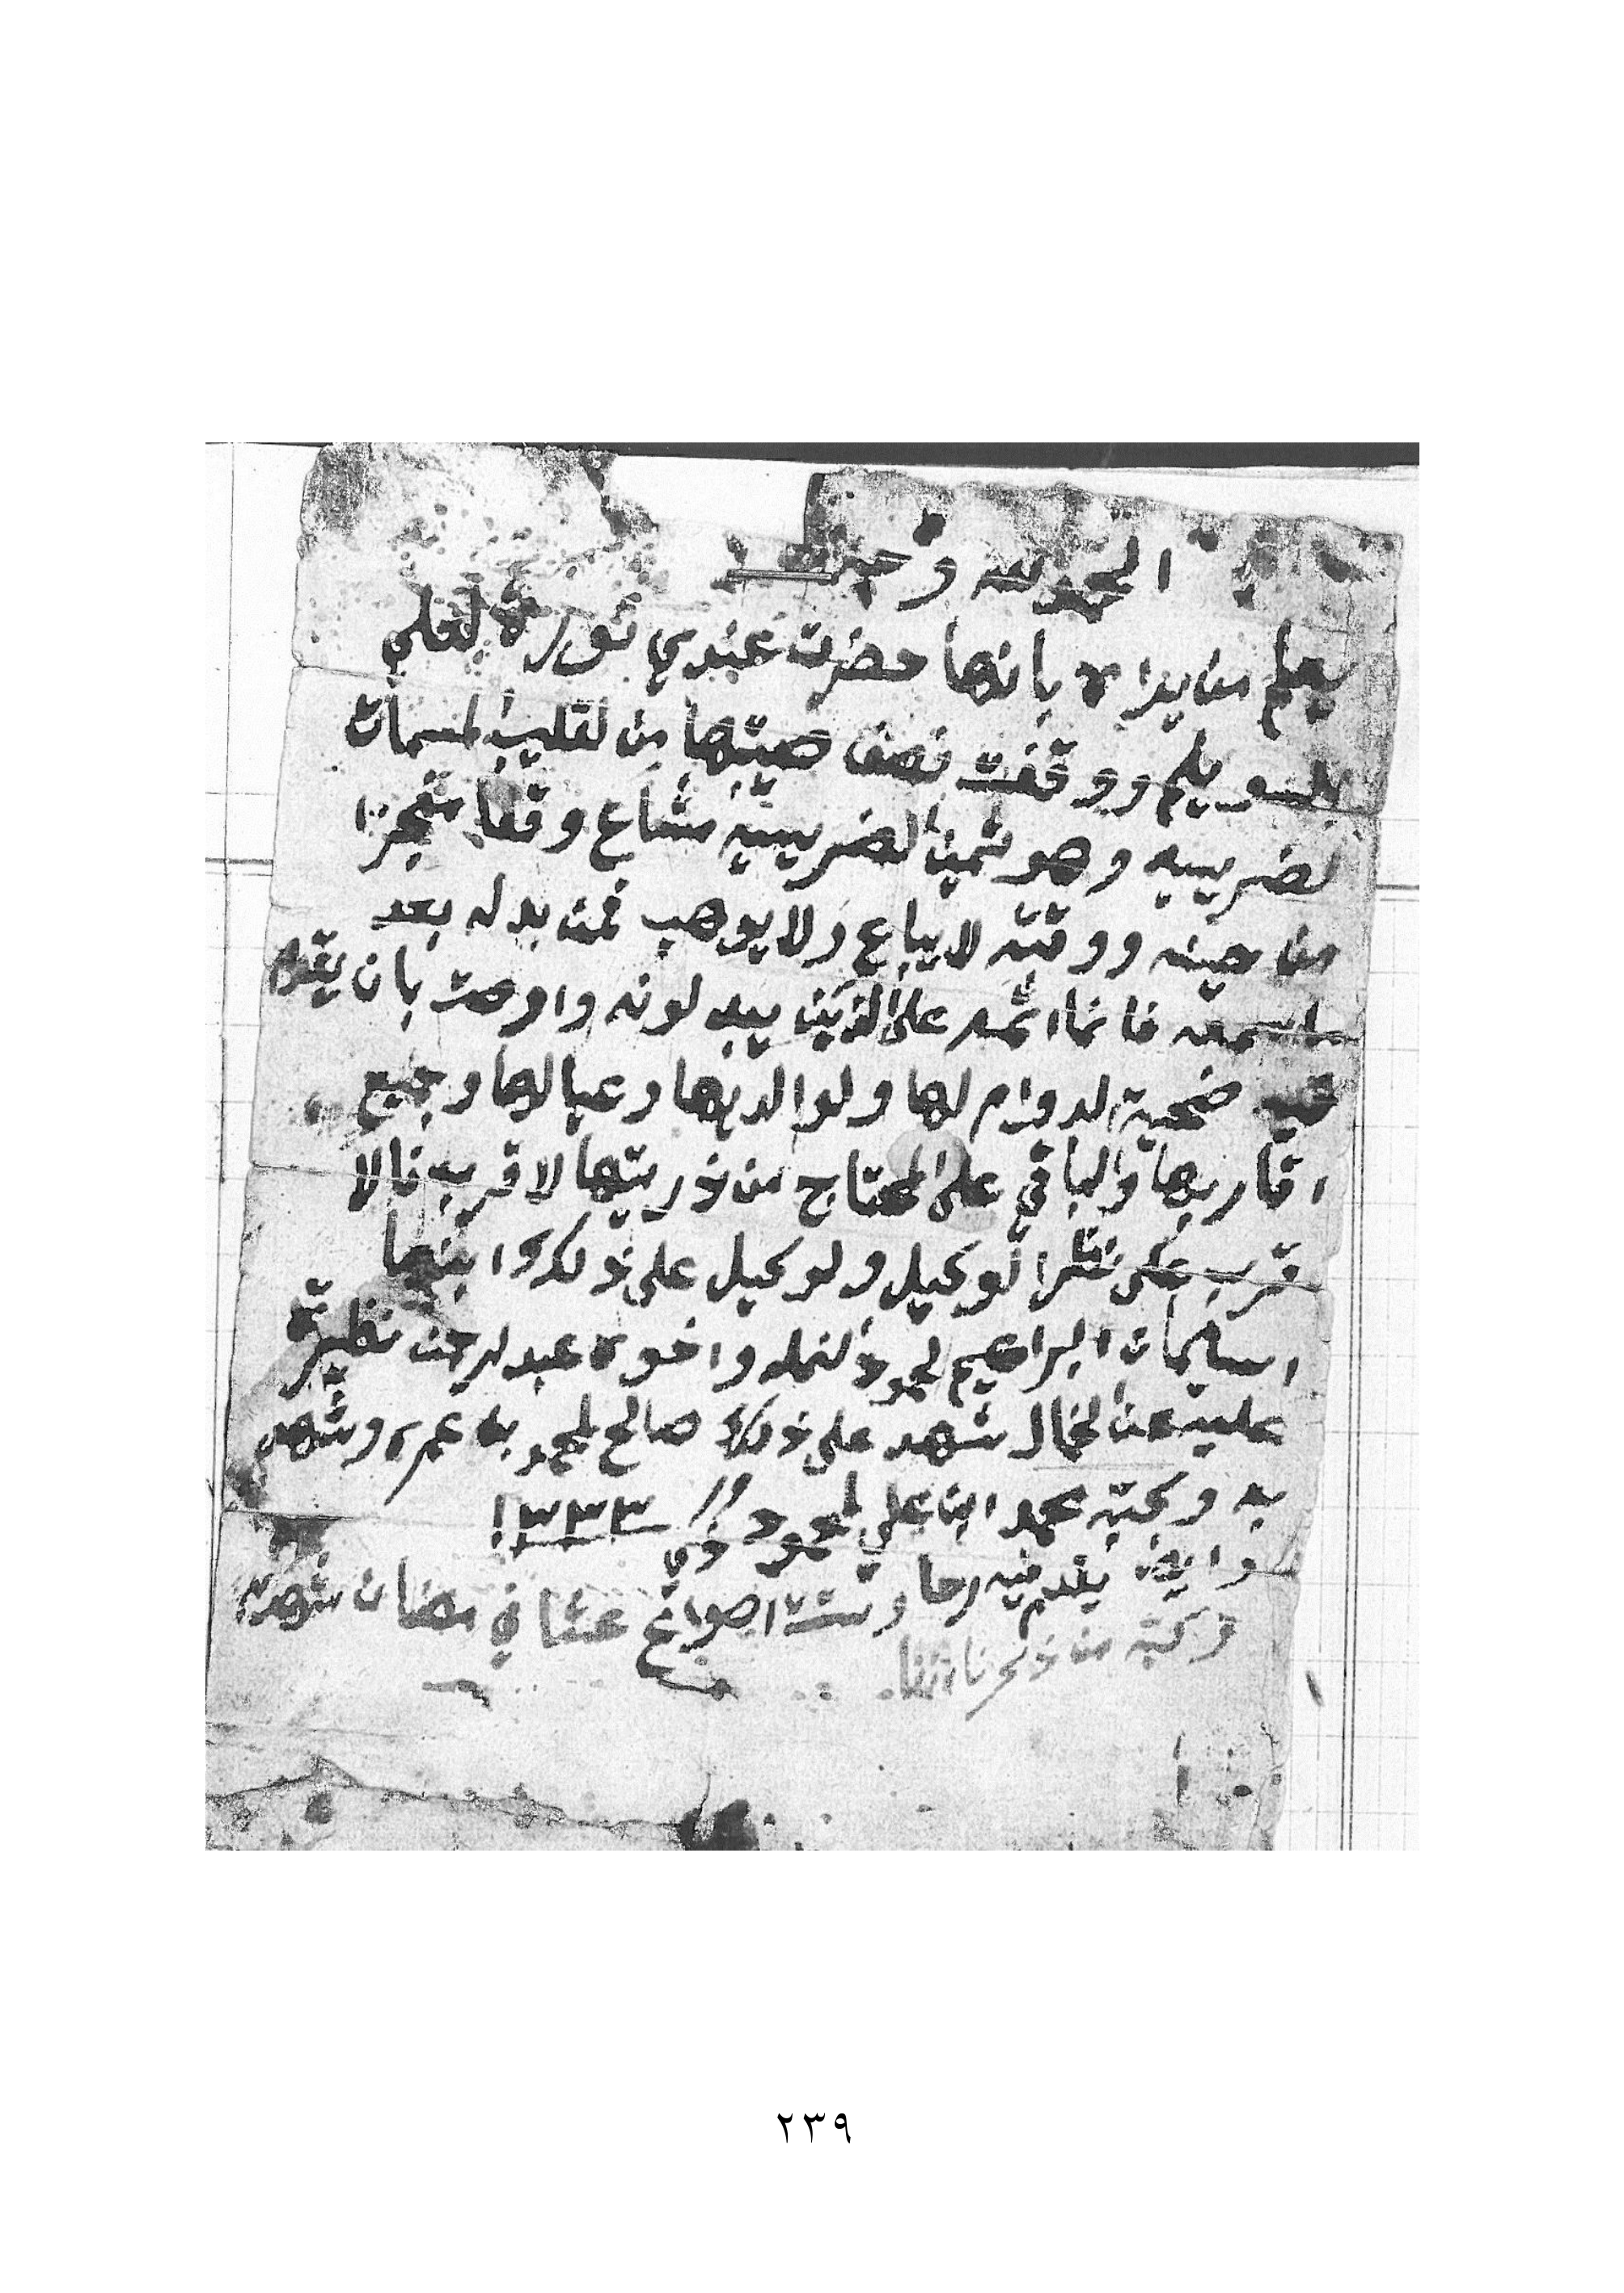 الحمد لله وحده
يعلم من يراه بانها حضرت عندي نوره لعلي
لسويلم ووقفت نصف صيبتها من لقليب لمسمات
لضريبيه وهو ثمين لضريبيه مشاع وقفا منجزا
من حينه ووقته لا يباع ولا يوهب فمن بدله بعد
ما سمعه فانما اثمه على الذين يبدلونه واوصت بان يقدم
فيه ضحية لدوام لها ولوالديها وعيالها وجميع
اقاربها والباقي على المحتاج من ذريتها لا قرب فالا
قرب على نظر الوكيل ولوكيل على ذلك ابنها
اسليمان البراهيم لحمود لنمله واخوه عبدلرحمن نظيره
عليه عن لخمال شهد على ذلك صالح لمحمد به عمر وشهد
به وكتبه محمد ابن علي لحمود // ١٣٣٣
وايض يقدم فيه رحا وست اصواع عشا في رمضان شهد به
وكتبه من ذكرنا انفا
٢٣٩